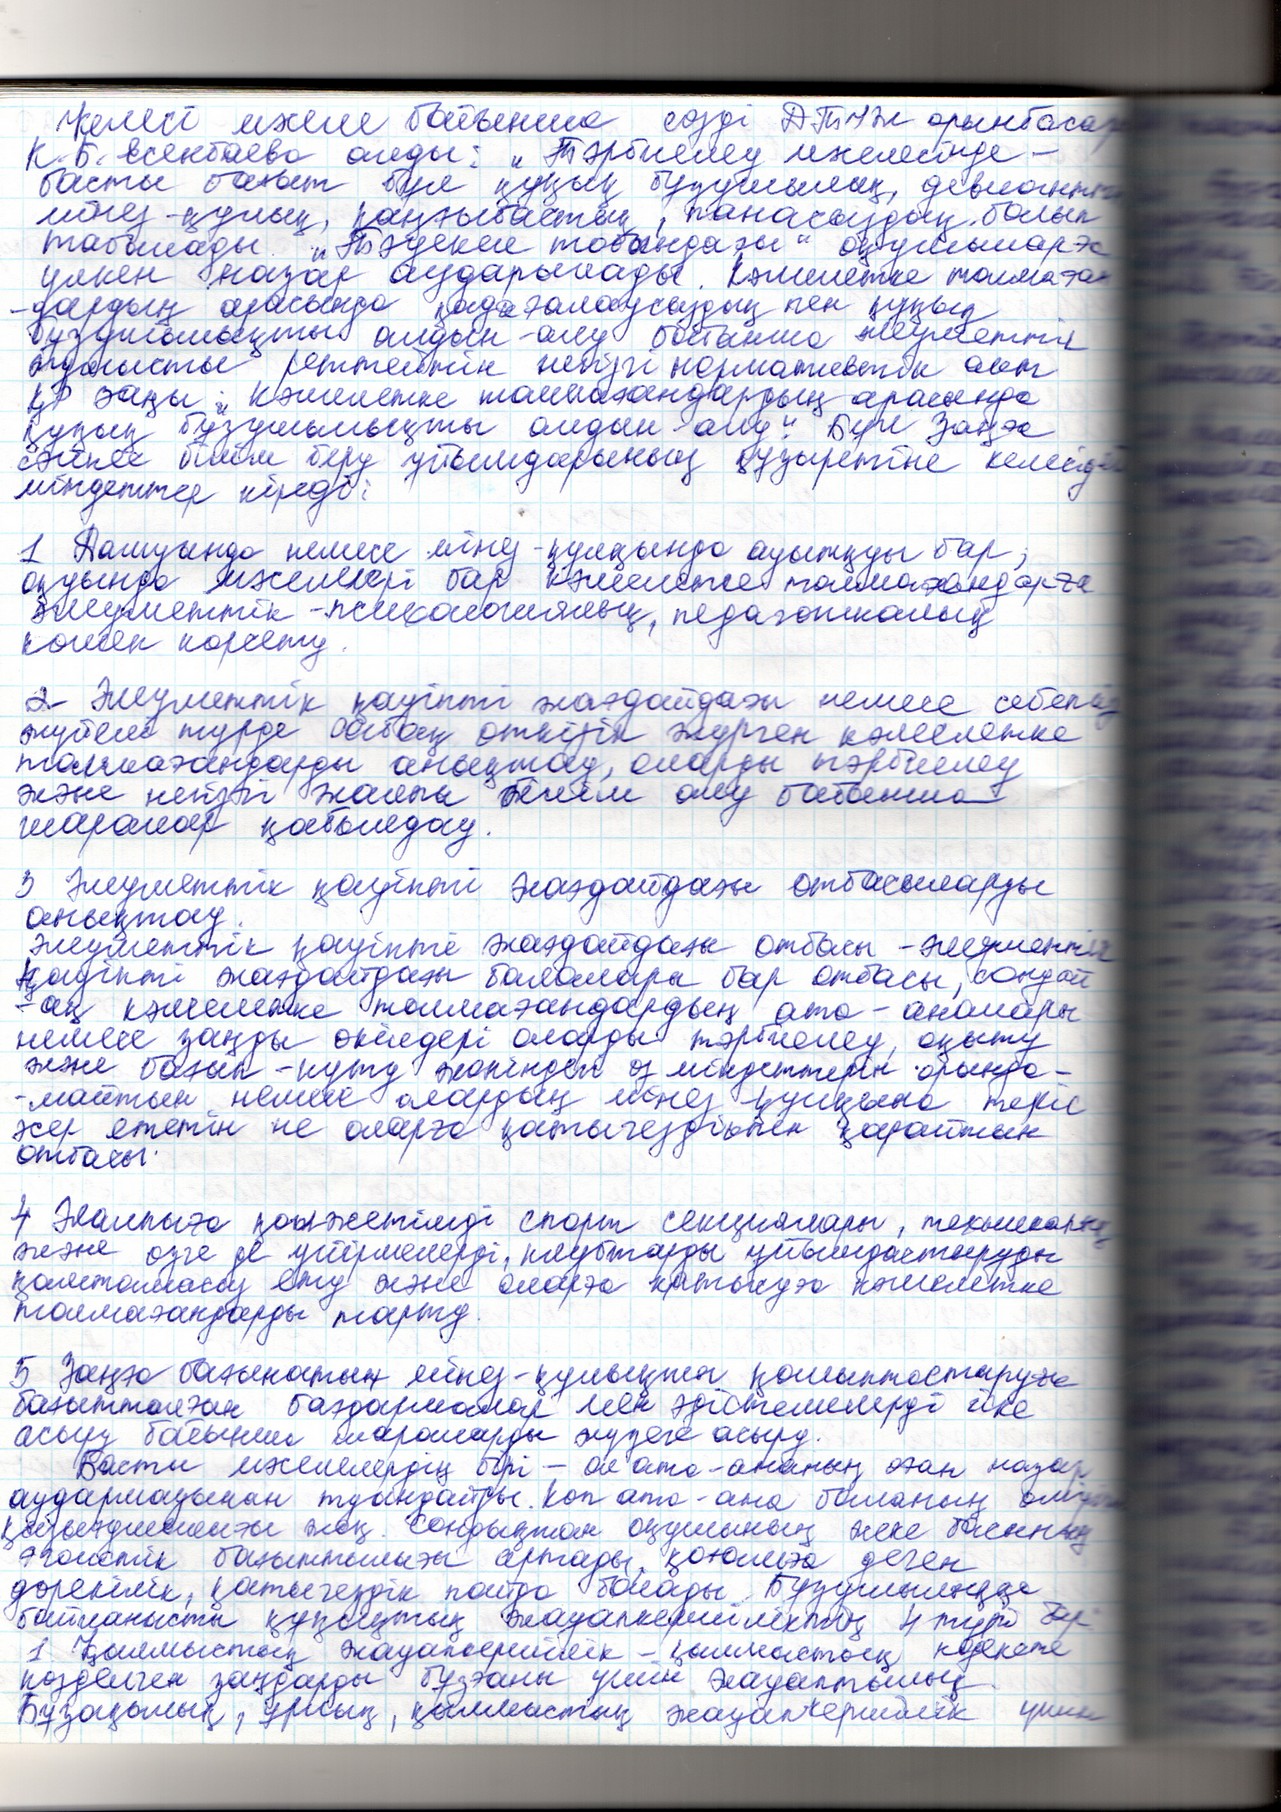 Келесі мәселе бойынша сөзді ДТІЖ орынбасар
К.Б. Есенбаева алды: „Тәрбиелеу мәселесінде –
басты бағыт бұл құқық бұзушылық, девиантты
мінез-құлық, қауіпсіздік, панасыздық болып
табылады. „Тәуекел тобындағы“ оқушыларға
үлкен назар аударылады. Кәмелетке толмаған
-дардың арасында қадағалаусыздық пен құқық
бұзушылықты алдын-алу бойынша әлеуметтік
жұмысты реттейтін негізгі нормативтік акт
ҚР заңы „Кәмелетке толмағандардың арасында
құқық бұзушылықты алдын алу“. Бұл Заңға
сәйкес білім беру ұйымдарының құзыретіне келесідей
міндеттер кіреді:
1 Дамуында немесе мінез-құлқында ауытқуы бар,
оқуында мәселелері бар кәмелетке толмағандарға
әлеуметтік-психологиялық, педагогикалық
көмек көрсету.
2 Әлеуметтік қауіпті жағдайдағы немесе себепсіз
жүйелі түрде сабақ өткізіп жүрген кәмелетке
толмағандарды анықтау, оларды тәрбиелеу
және негізгі жалпы білім алу бойынша
шаралар қабылдау.
3 Әлеуметтік қауіпті жағдайдағы отбасыларды
анықтау.
Әлеуметтік қауіпті жағдайдағы отбасы – әлеуметтік
қауіпті жағдайдағы балалары бар отбасы, сондай
-ақ кәмелетке толмағандардың ата-аналары
немесе заңды өкілдері оларды тәрбиелеу, оқыту
және бағып-күту жөніндегі өз міндеттерін орында-
-майтын немесе олардың мінез құлқына теріс
әсер ететін не оларға қатыгездікпен қарайтын
отбасы.
4 Жалпыға қолжетімді спорт секциялары, техникалық
және өзге де үйірмелерді, клубтарды ұйымдастыруды
қамтамасыз ету және оларға қатысуға кәмелетке
толмағандарды тарту.
5 Заңға бағынатын мінез-құлықты қалыптастыруға
бағытталған бағдарламалар мен әдістемелерді іске
асыру бойынша шараларды жүзеге асыру.
Басты мәселелердің бірі – ол ата-ананың оған назар
аудармауынан туындайды. Көп ата-ана баланың
жоқ. Сондықтан оқушының жеке басының
эгоистік бағыттылығы артады, қоғамға деген
дөрекілік, қатыгездік пайда болады. Бұзушылыққа
байланысты құқықтық жауапкершіліктің 4 түрі бар
1 Қылмыстық жауапкершілік – қылмыстық кодексте
көзделген заңдарды бұзғаны үшін жауаптылық.
Бұзақылық, ұрлық, қылмыстық жауапкершілік үшін